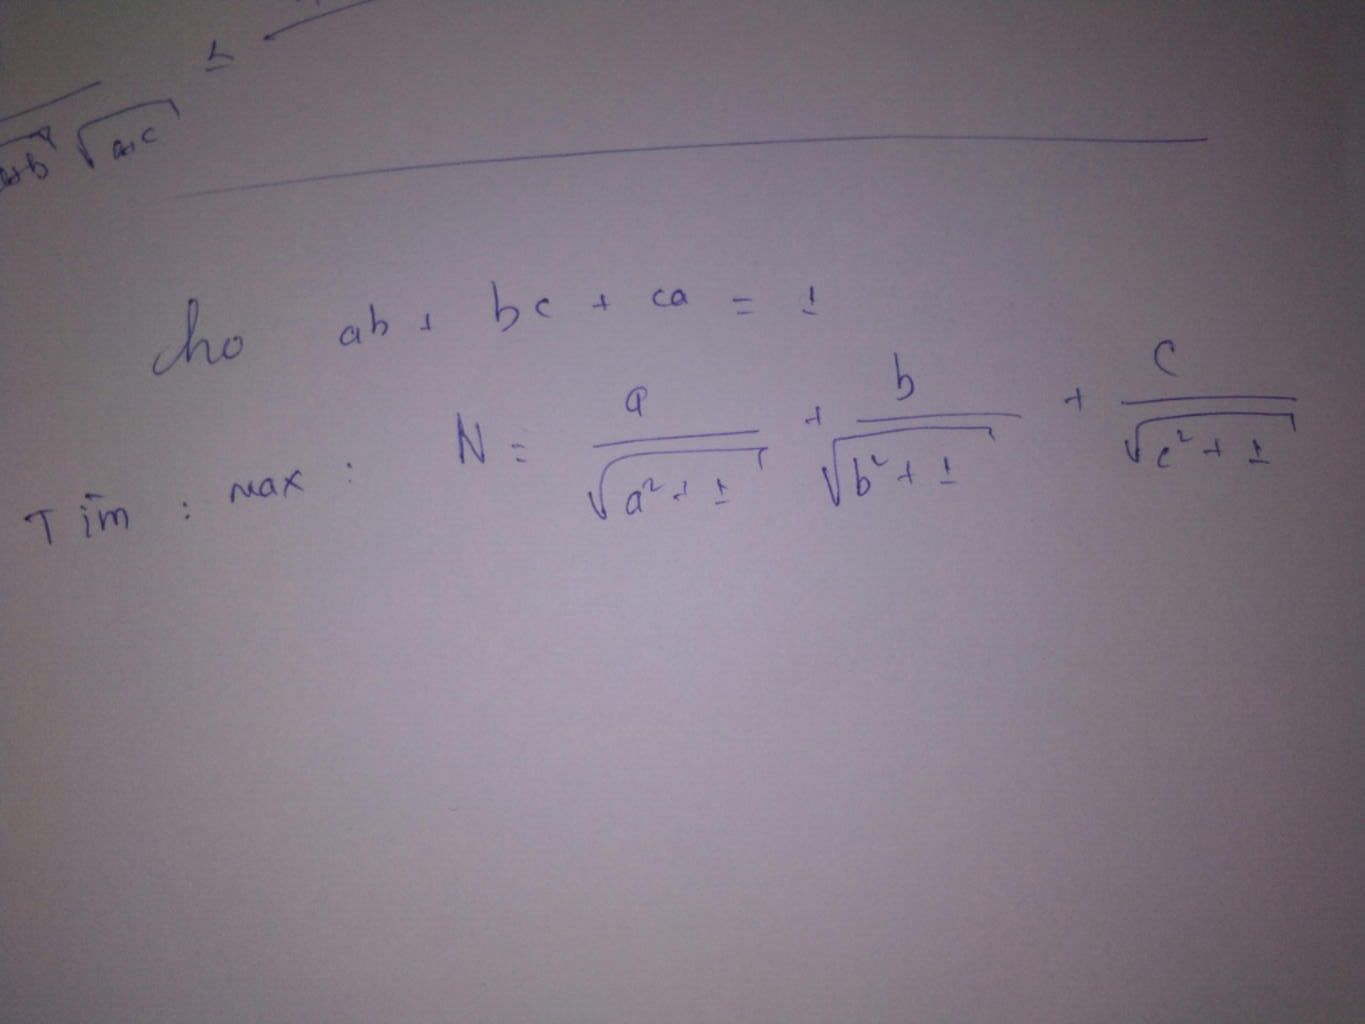 ≤
√a+b √a+c
Cho ab + bc + ca = 1
Tìm : max : N = a/√(a²+1) + b/√(b²+1) + c/√(c²+1)